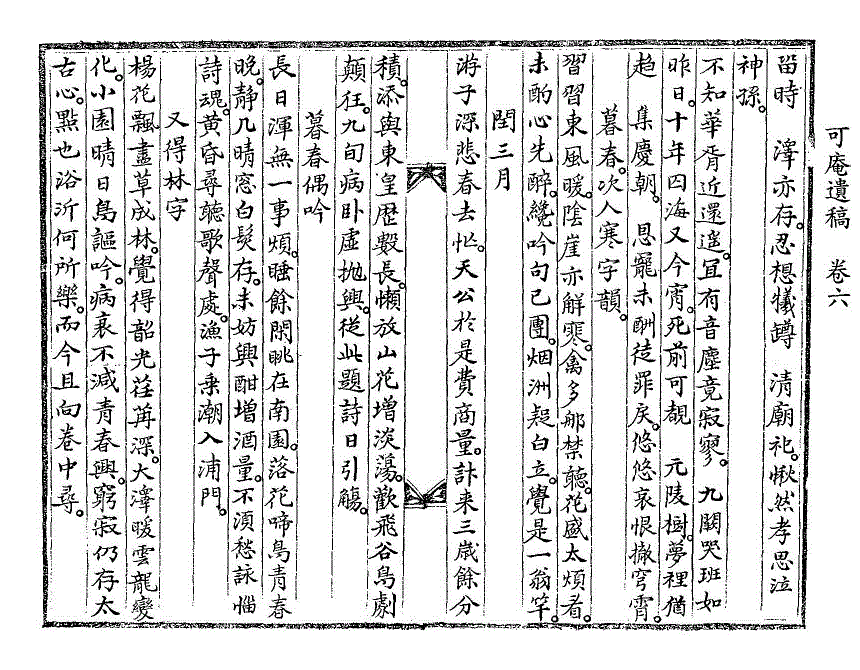 可庵遺稿　卷六
留時　澤亦存。忍想犧罇　淸廟祀。愀然孝思泣
神孫。
不知華胥近還遥。冝有音塵竟寂寥。九闕哭班如
昨日。十年四海又今宵。死前可覩　元陵樹。夢裡猶
趍　集慶朝。　恩寵未酬徒罪戾。悠悠哀恨撤穹霄。
暮春。次人寒字韻。
習習東風暖。陰崖亦解寒。禽多郍禁聽。花盛太煩看。
未酌心先醉。纔吟句已團。烟洲疑白立。覺是一翁竿。
閏三月
游子深悲春去忙。天公於是費商量。計来三歲餘分
積。添與東皇歷數長。懶放山花增淡蕩。歡飛谷鳥劇
顛狂。九旬病卧虛抛興。從此題詩日引觴。
暮春偶吟
長日渾無一事煩。睡餘閑眺在南園。落花啼鳥青春
晚。靜几晴窓白髮存。未妨興酣增酒量。不湏愁詠惱
詩魂。黄昏尋聽歌聲處。漁子乗潮入浦門。
又得林字
楊花飄盡草成林。覺得韶光荏苒深。大澤暖雲龍變
化。小園晴日鳥謳吟。病衰不減青春興。窮寂仍存太
古心。點也浴沂何所樂。而今且向卷中尋。